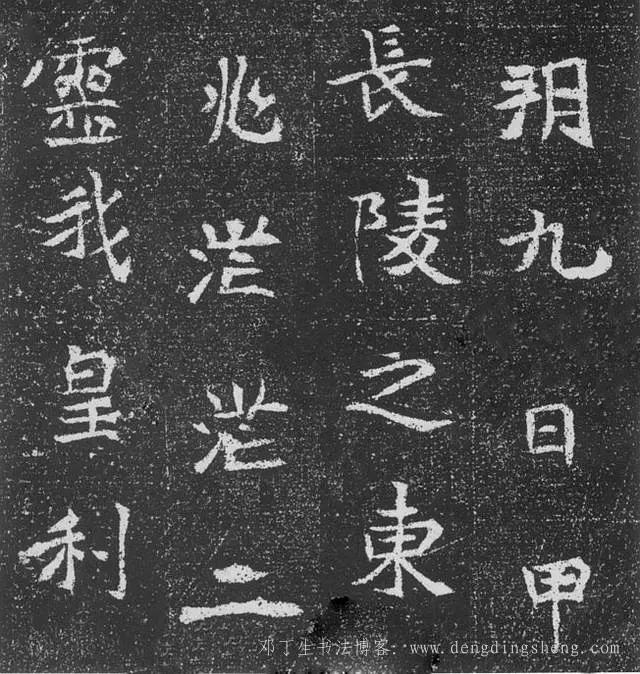 朔九日甲
長陵之東
兆茫茫二
靈我皇利
邓丁生书法博客：www.dengdingsheng.com